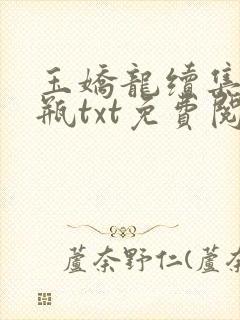 玉嬌龍續集
瓶txt免費閱
蘆奈野仁(蘆奈